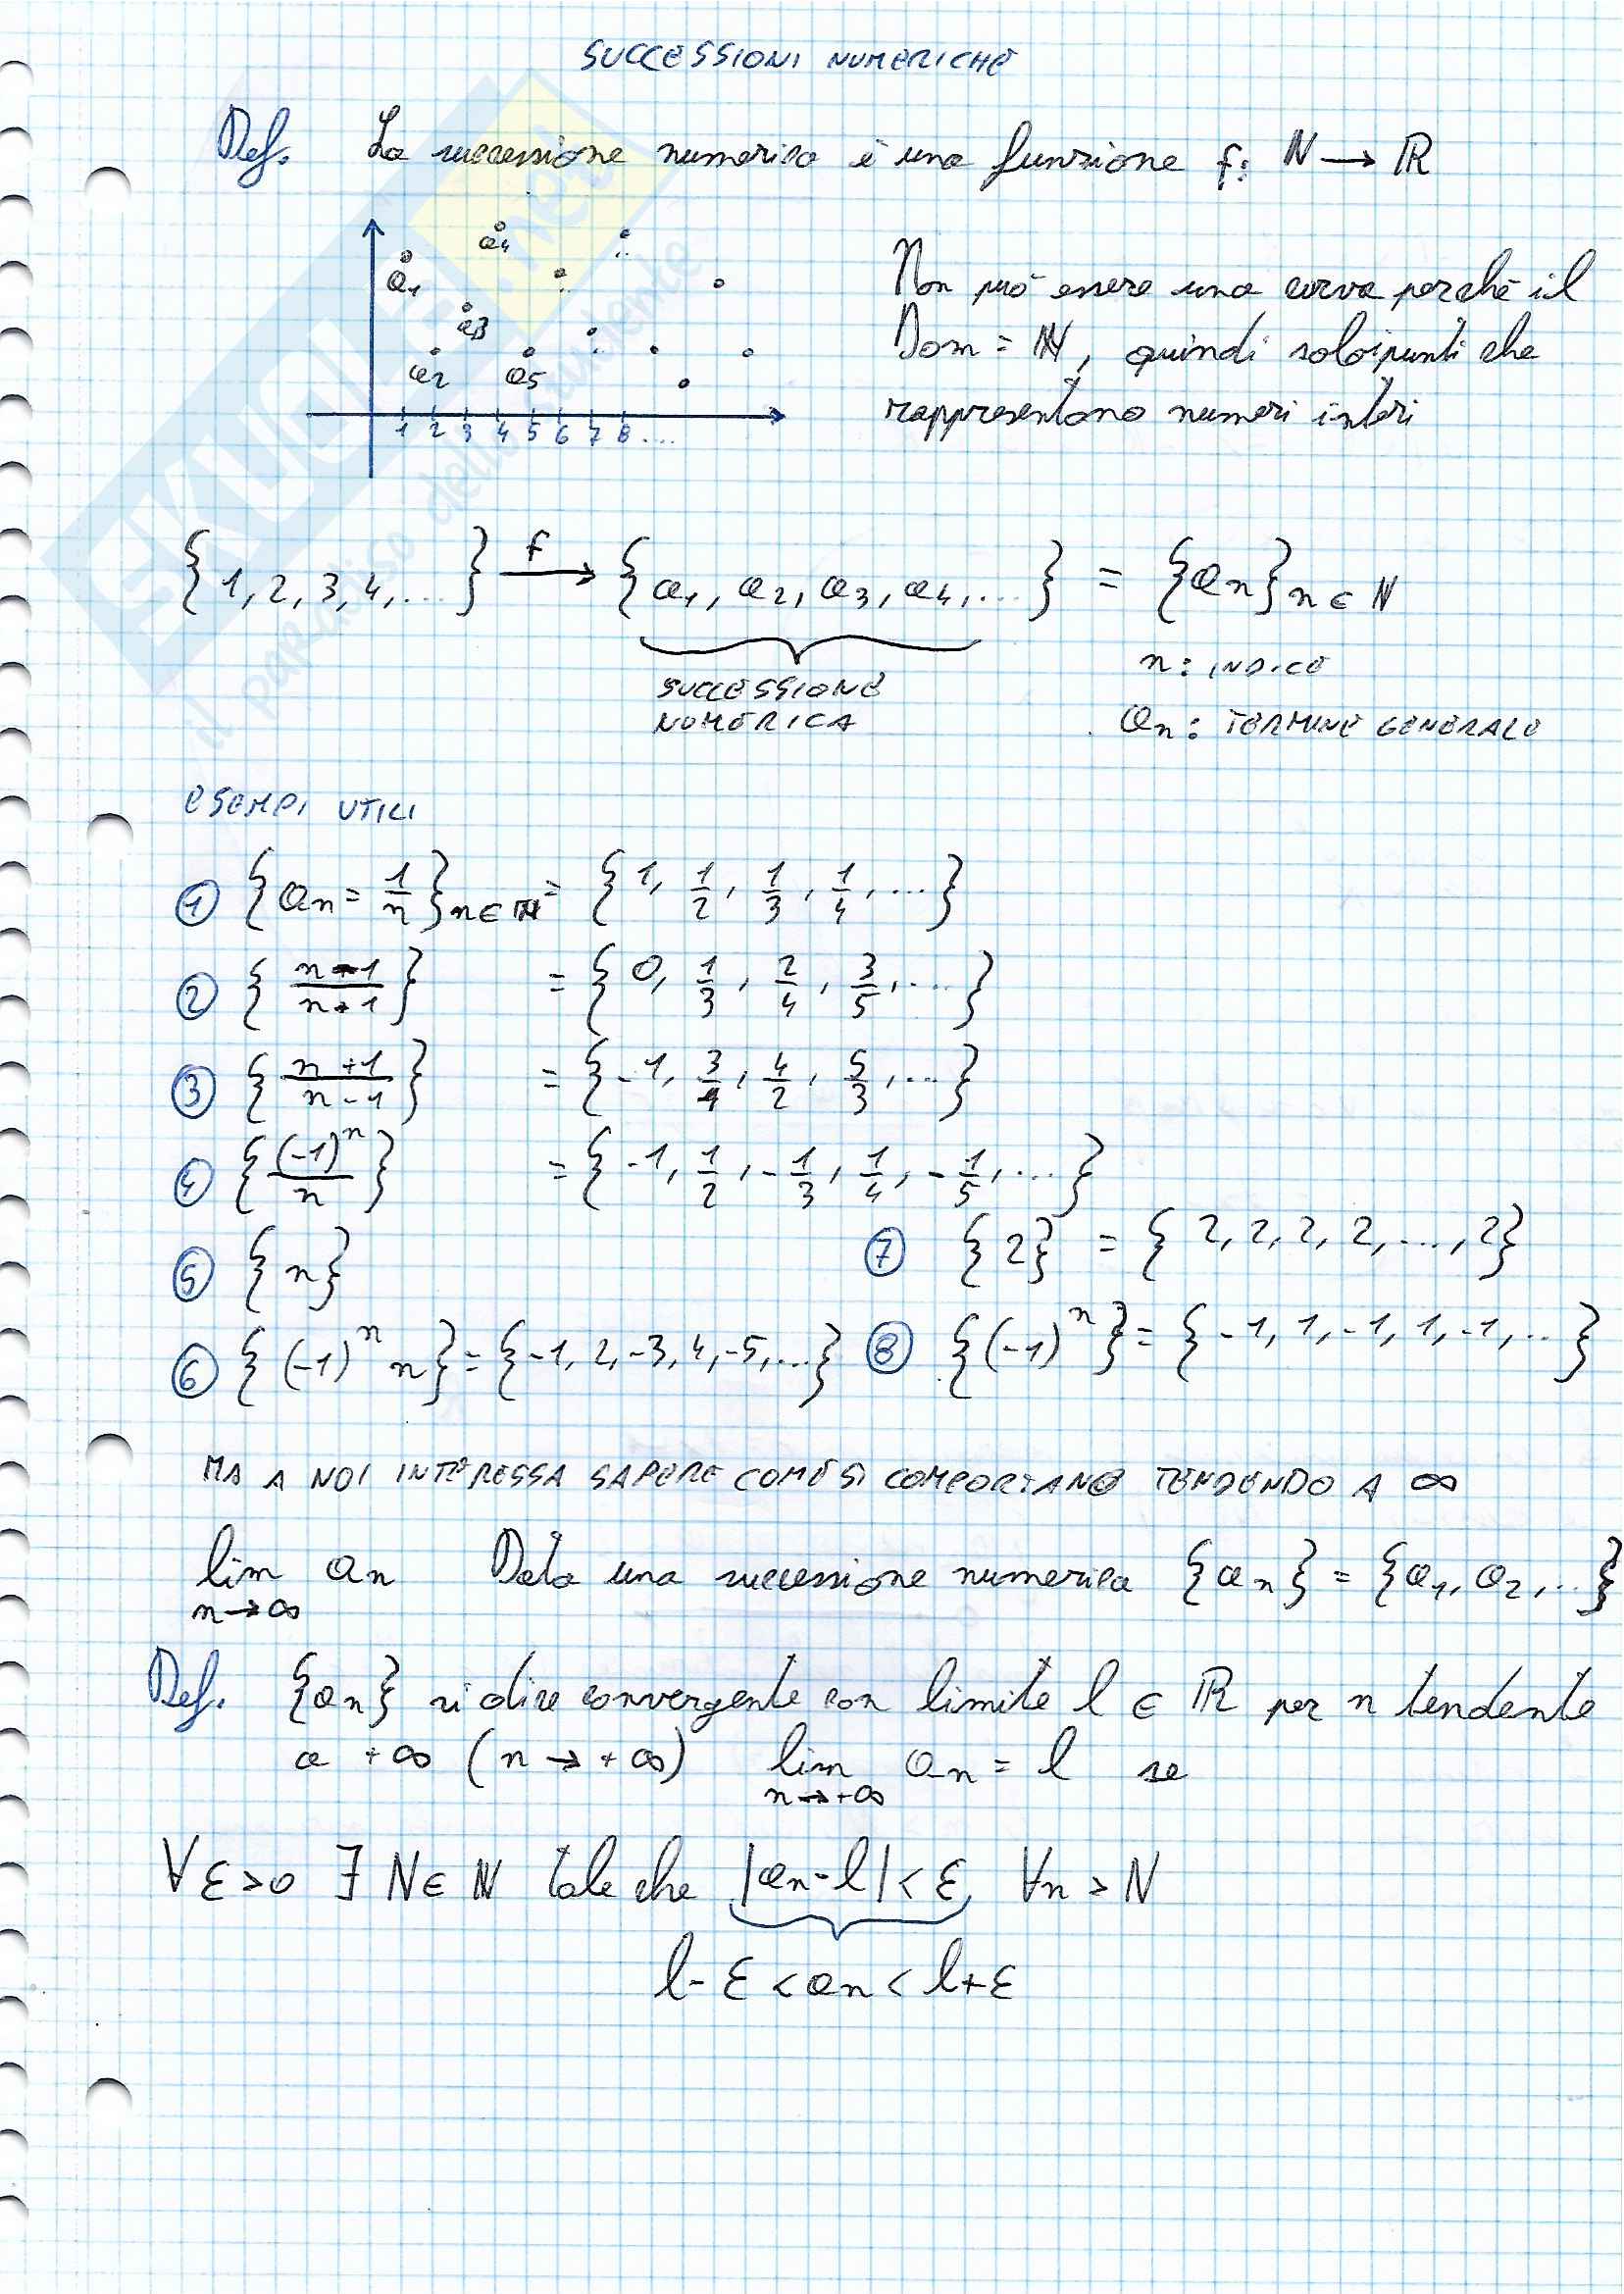 SUCCESSIONI NUMERICHE
Def. La successione numerica è una funzione f: ℕ → ℝ
a1 a2 a3 a4 a5
1 2 3 4 5 6 7 8 ....
Non può essere una curva perchè il
Dom = ℕ, quindi solo i punti che
rappresentano numeri interi
{1, 2, 3, 4, ...} f→ {a1, a2, a3, a4, ...} = {an} n ∈ ℕ
SUCCESSIONE
NUMERICA
n: INDICE
an: TERMINE GENERALE
ESEMPI UTILI
① {an = 1/n} n∈ℕ = {1, 1/2, 1/3, 1/4, ...}
② {(n-1)/(n+1)} = {0, 1/3, 2/4, 3/5, ...}
③ {(n+1)/(n-1)} = {-1, 3/1, 4/2, 5/3, ...}
④ {(-1)^n/n} = {-1, 1/2, -1/3, 1/4, -1/5, ...}
⑤ {n}
⑦ {2} = {2, 2, 2, 2, ..., 2}
⑥ {(-1)^n n} = {-1, 2, -3, 4, -5, ...}
⑧ {(-1)^n} = {-1, 1, -1, 1, -1, ..}
MA A NOI INTERESSA SAPERE COME SI COMPORTANO TENDENDO A ∞
lim n→∞ an Data una successione numerica {an} = {a1, a2, ...}
Def. {an} si dice convergente con limite l ∈ ℝ per n tendente
a +∞ (n → +∞) lim n→+∞ an = l se
∀ε>0 ∃ N∈ℕ tale che |an-l| < ε, ∀n > N
l-ε < an < l+ε
SKUOLA.net
il paradiso dello studente